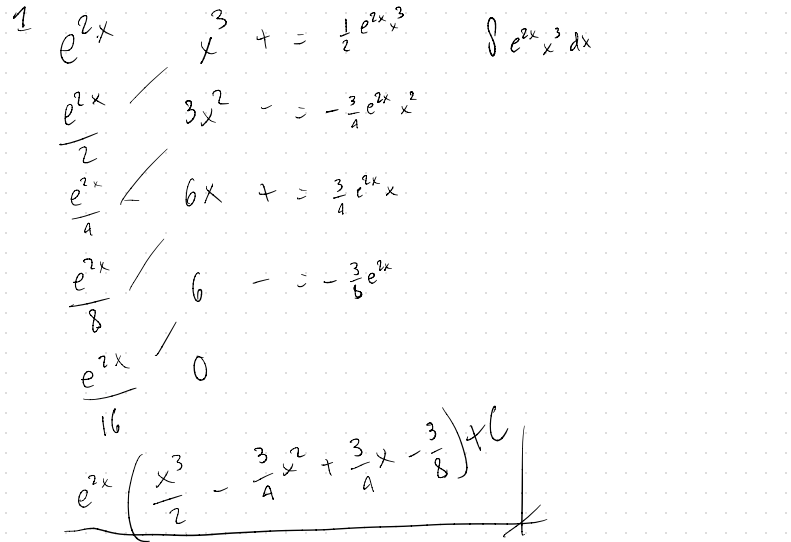 1 e^{2x} x^3 + = \frac{1}{2} e^{2x} x^3 ∫ e^{2x} x^3 dx
\frac{e^{2x}}{2} 3x^2 - = -\frac{3}{4} e^{2x} x^2
\frac{e^{2x}}{4} 6x + = \frac{3}{4} e^{2x} x
\frac{e^{2x}}{8} 6 - = -\frac{3}{8} e^{2x}
\frac{e^{2x}}{16} 0
e^{2x} ( \frac{x^3}{2} - \frac{3}{4} x^2 + \frac{3}{4} x - \frac{3}{8} ) + C